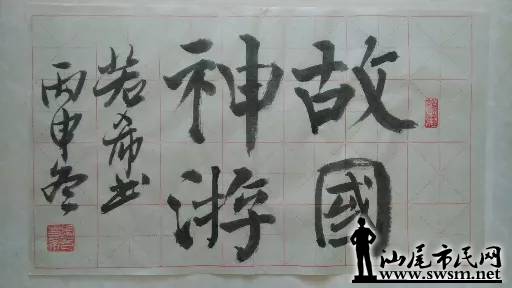 故國
神游
若希书
丙申冬
汕尾市民网
www.swsm.net